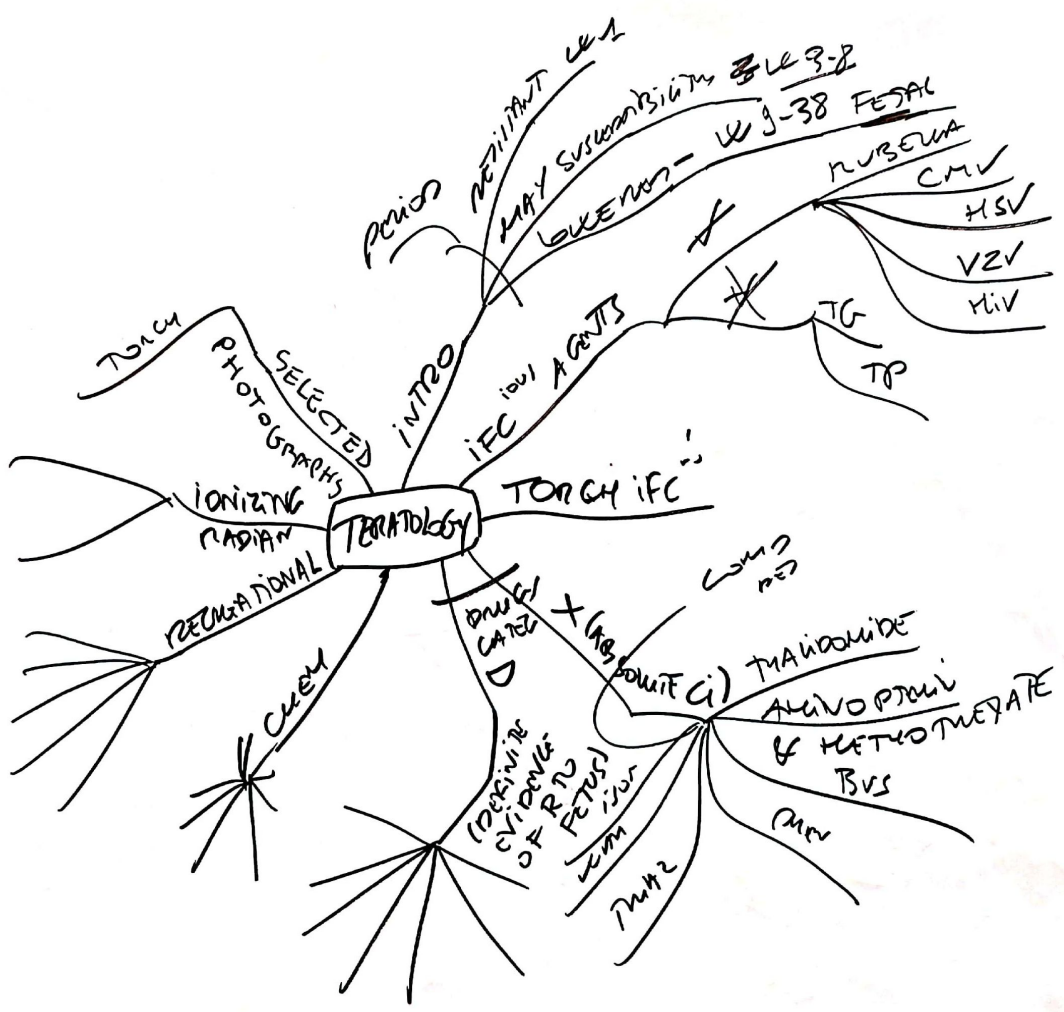 TERATOLOGY
INTRO
PERIOD
WK 1
MAX SUSCEPTIBILITY WK 3-8
WK 9-38 FETAL
iFC IOUS AGENTS
RUBELLA
CMV
HSV
VZV
HiV
TG
TP
TORCH iFC
DRUGS
CATEG
X (ABSOLUTE Ci)
THALIDOMIDE
AMINOPTERIN
& METHOTREXATE
BUS
TRIAZ
D
(DEFINITE
EVIDENCE
OF R TO
FETUS)
CHEM
RECREATIONAL
IONIZING
RADIAN
SELECTED
PHOTOGRAPHS
TORCH